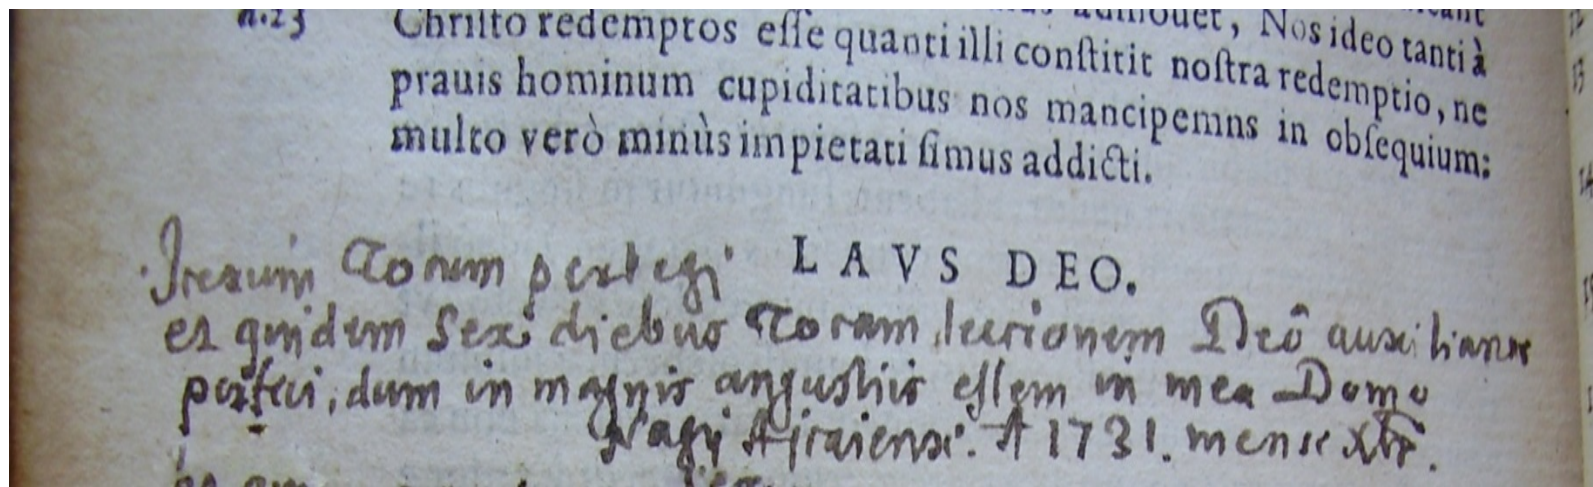 admouet, Nos ideo tanti à
Chriſto redemptos eſſe quanti illi conſtitit noſtra redemptio, ne
prauis hominum cupiditatibus nos mancipemns in obſequium:
multo verò minùs impietati ſimus addicti.
LAVS DEO.
Iterum Totum perlegi
et quidem sex diebus Totam lectionem Deô auxiliante
perfeci, dum in magnis angustiis essem in mea Domo
Nagy Ajtaiensi. A 1731. mense Xbr.